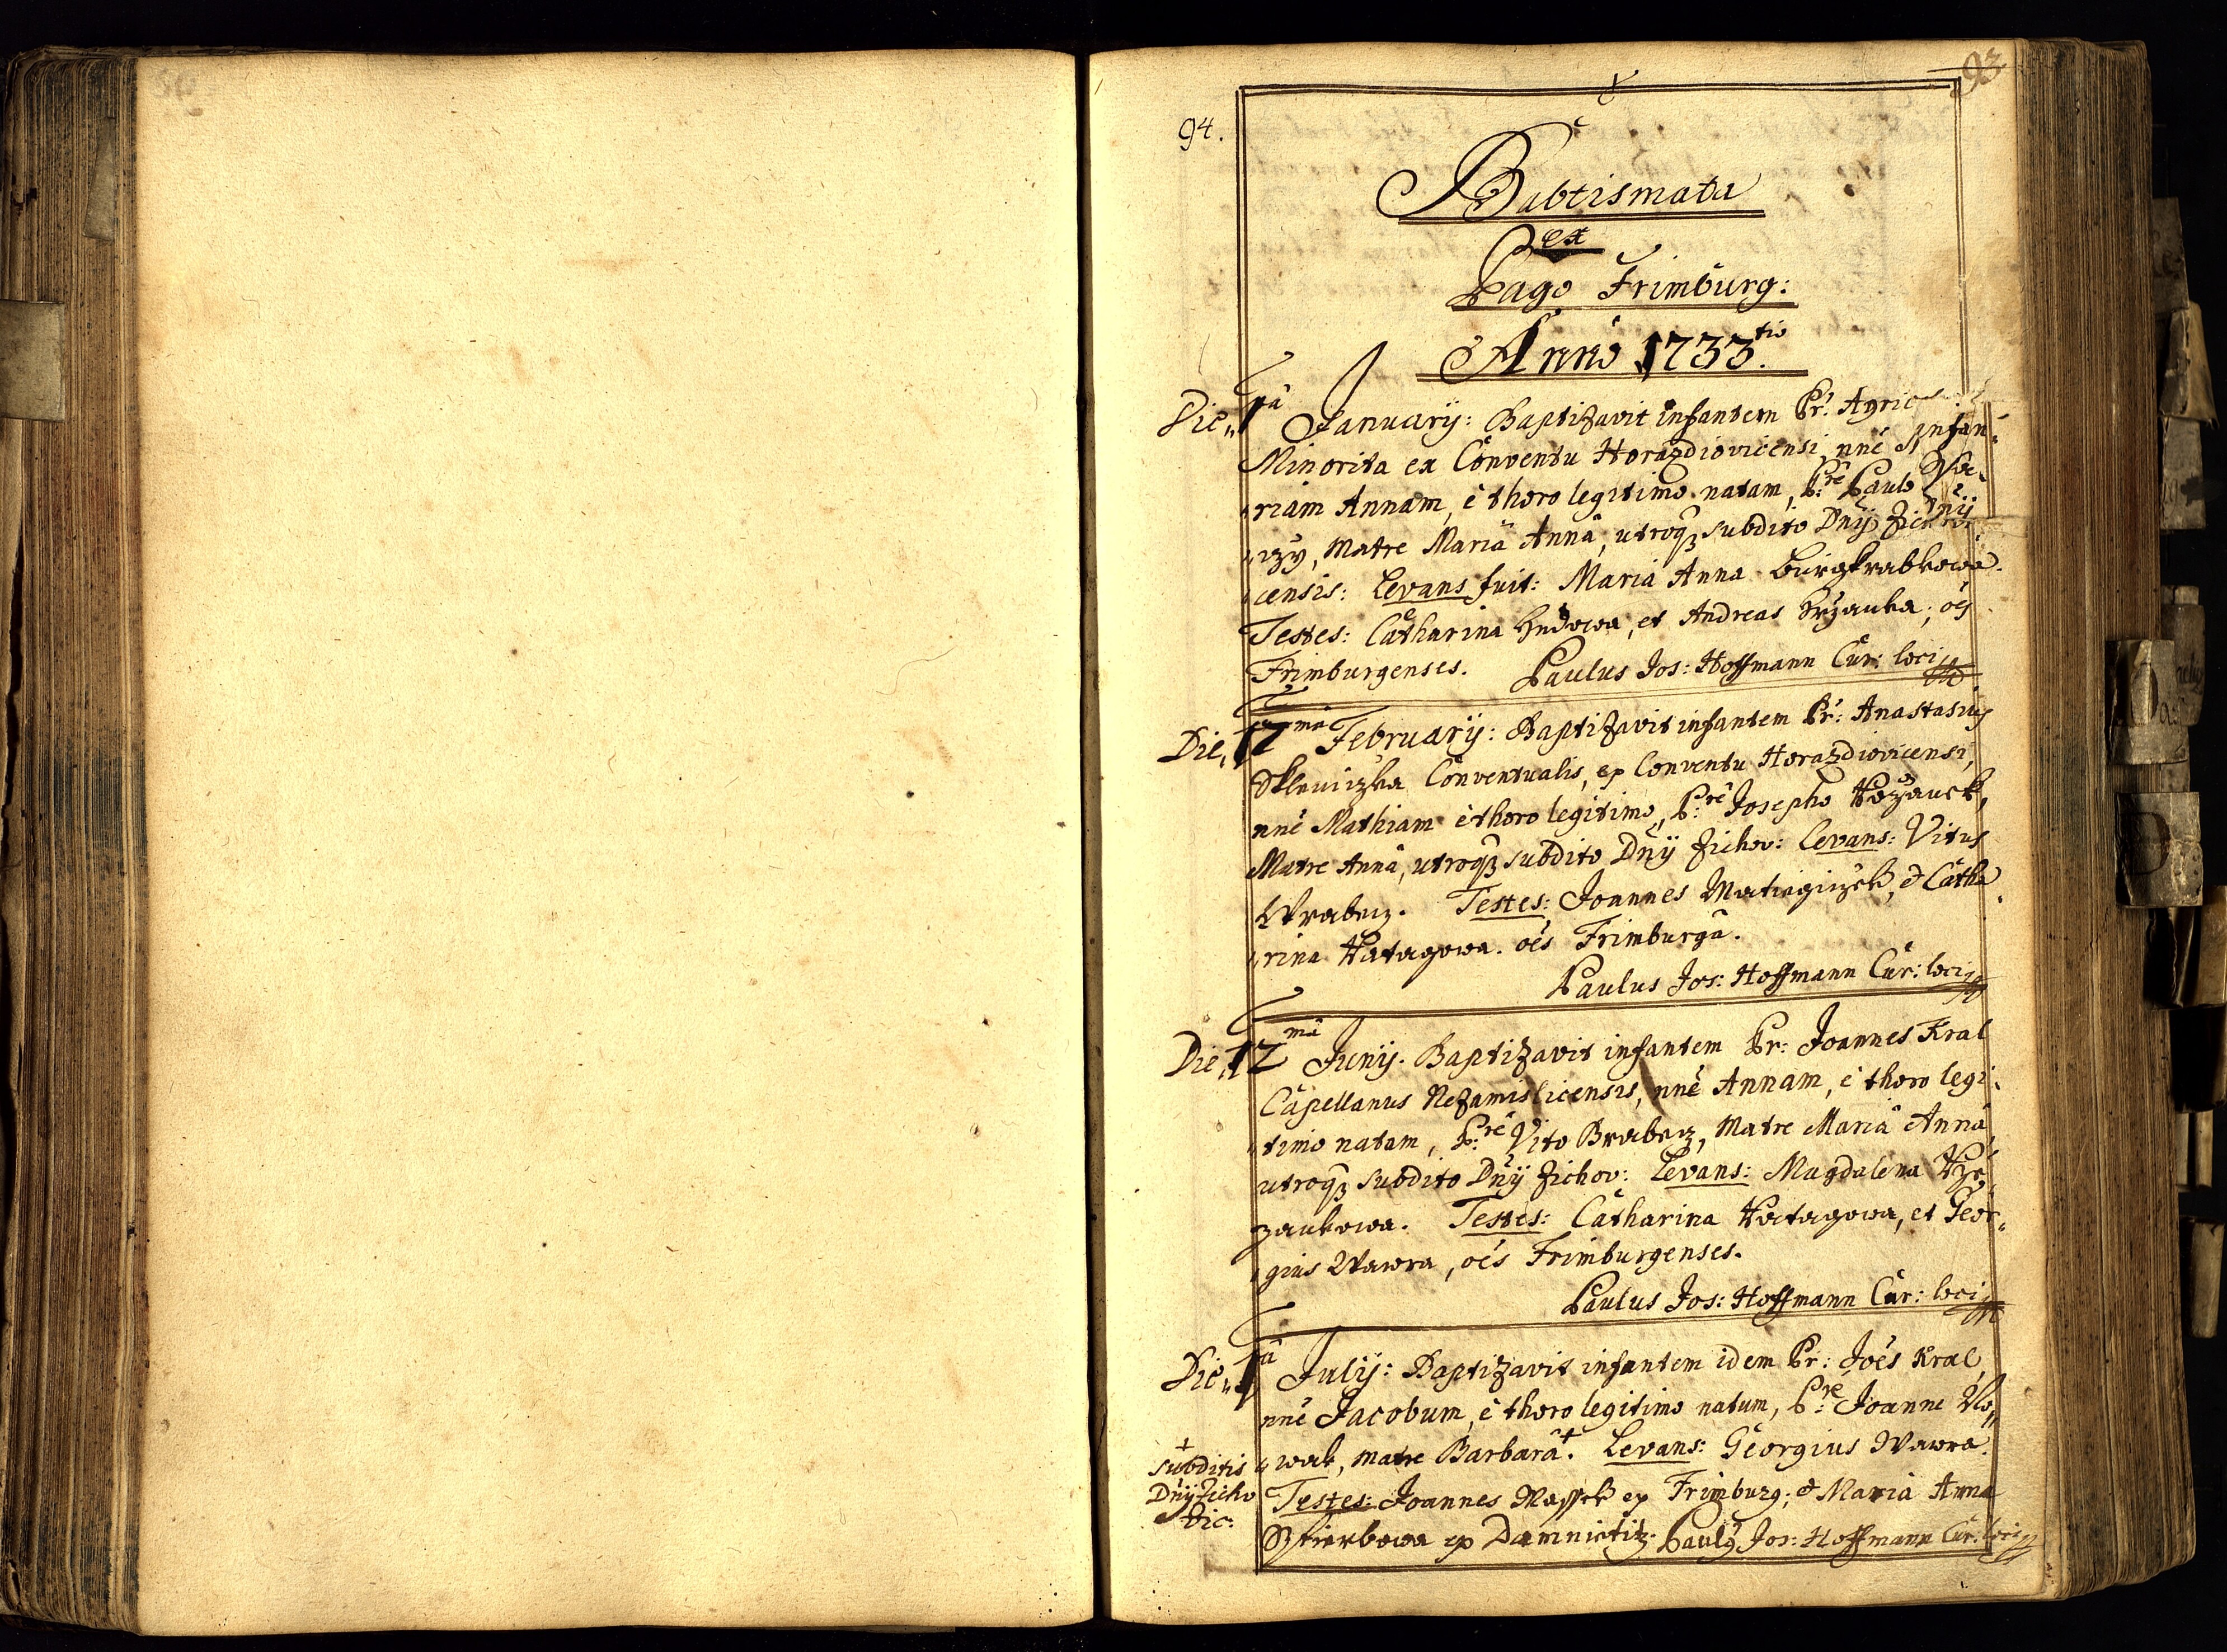 93
94.
Babtismata
ex
Pago Frimburg:
Anno 1733tio.
Die 1mâ Januarij: Baptizavit infantem Pr:
Minorita ex Conventu Horazdiovicensi, nnê
riam Annam, è thoro legitimo natam, P:rê Paulo
Matre Mariâ Annâ, utroqȝ subdito Dnÿ
censis: Levans fuit: Maria Anna Burgkrabkowa.
Testes: Catharina et Andreas oēs
Frimburgenses. Paulus Jos: Hoffmann Cur: loci
Die 17mâ Februarij: Baptizavit infantem Pr: Anastasius
Conventualis, ex Conventu Horazdiovicensi,
nnê Mathiam è thoro legitimo, P:rê Josepho
Matre Annâ, utroqȝ subdito Dnÿ Zichov: Levans: Vitus
Wrabecz. Testes: Joannes & Catha
rina Hatagowa. oēs Frimburgâ.
Paulus Jos: Hoffmann Cur: loci
Die 12mâ Junij. Baptizavit infantem Pr: Joannes Kral
Capellanus Nezamislicensis, nnê Annam, è thoro legi
timo natam, P:rê Vito Brabecz, Matre Mariâ Annâ,
utroqȝ subdito Dnÿ Zichov: Levans: Magdalena
zaukowa. Testes: Catharina Hatagowa, et Geor„
gius Wawra, oēs Frimburgenses.
Paulus Jos: Hoffmann Cur: loci
Die 1â Julij: Baptizavit infantem idem Pr: Joēs Kral,
nnê Jacobum, è thoro legitimo natum, P:rê Joanne No„
„wak, matre Barbarâ+. Levans: Georgius Wawra.
+
subditis
Dnÿ Zicho
vic:
Testes: Joannes ex Frimburg; & Maria Anna
ex Damnietitz. Paulȝ Jos: Hoffmann Cur: loci